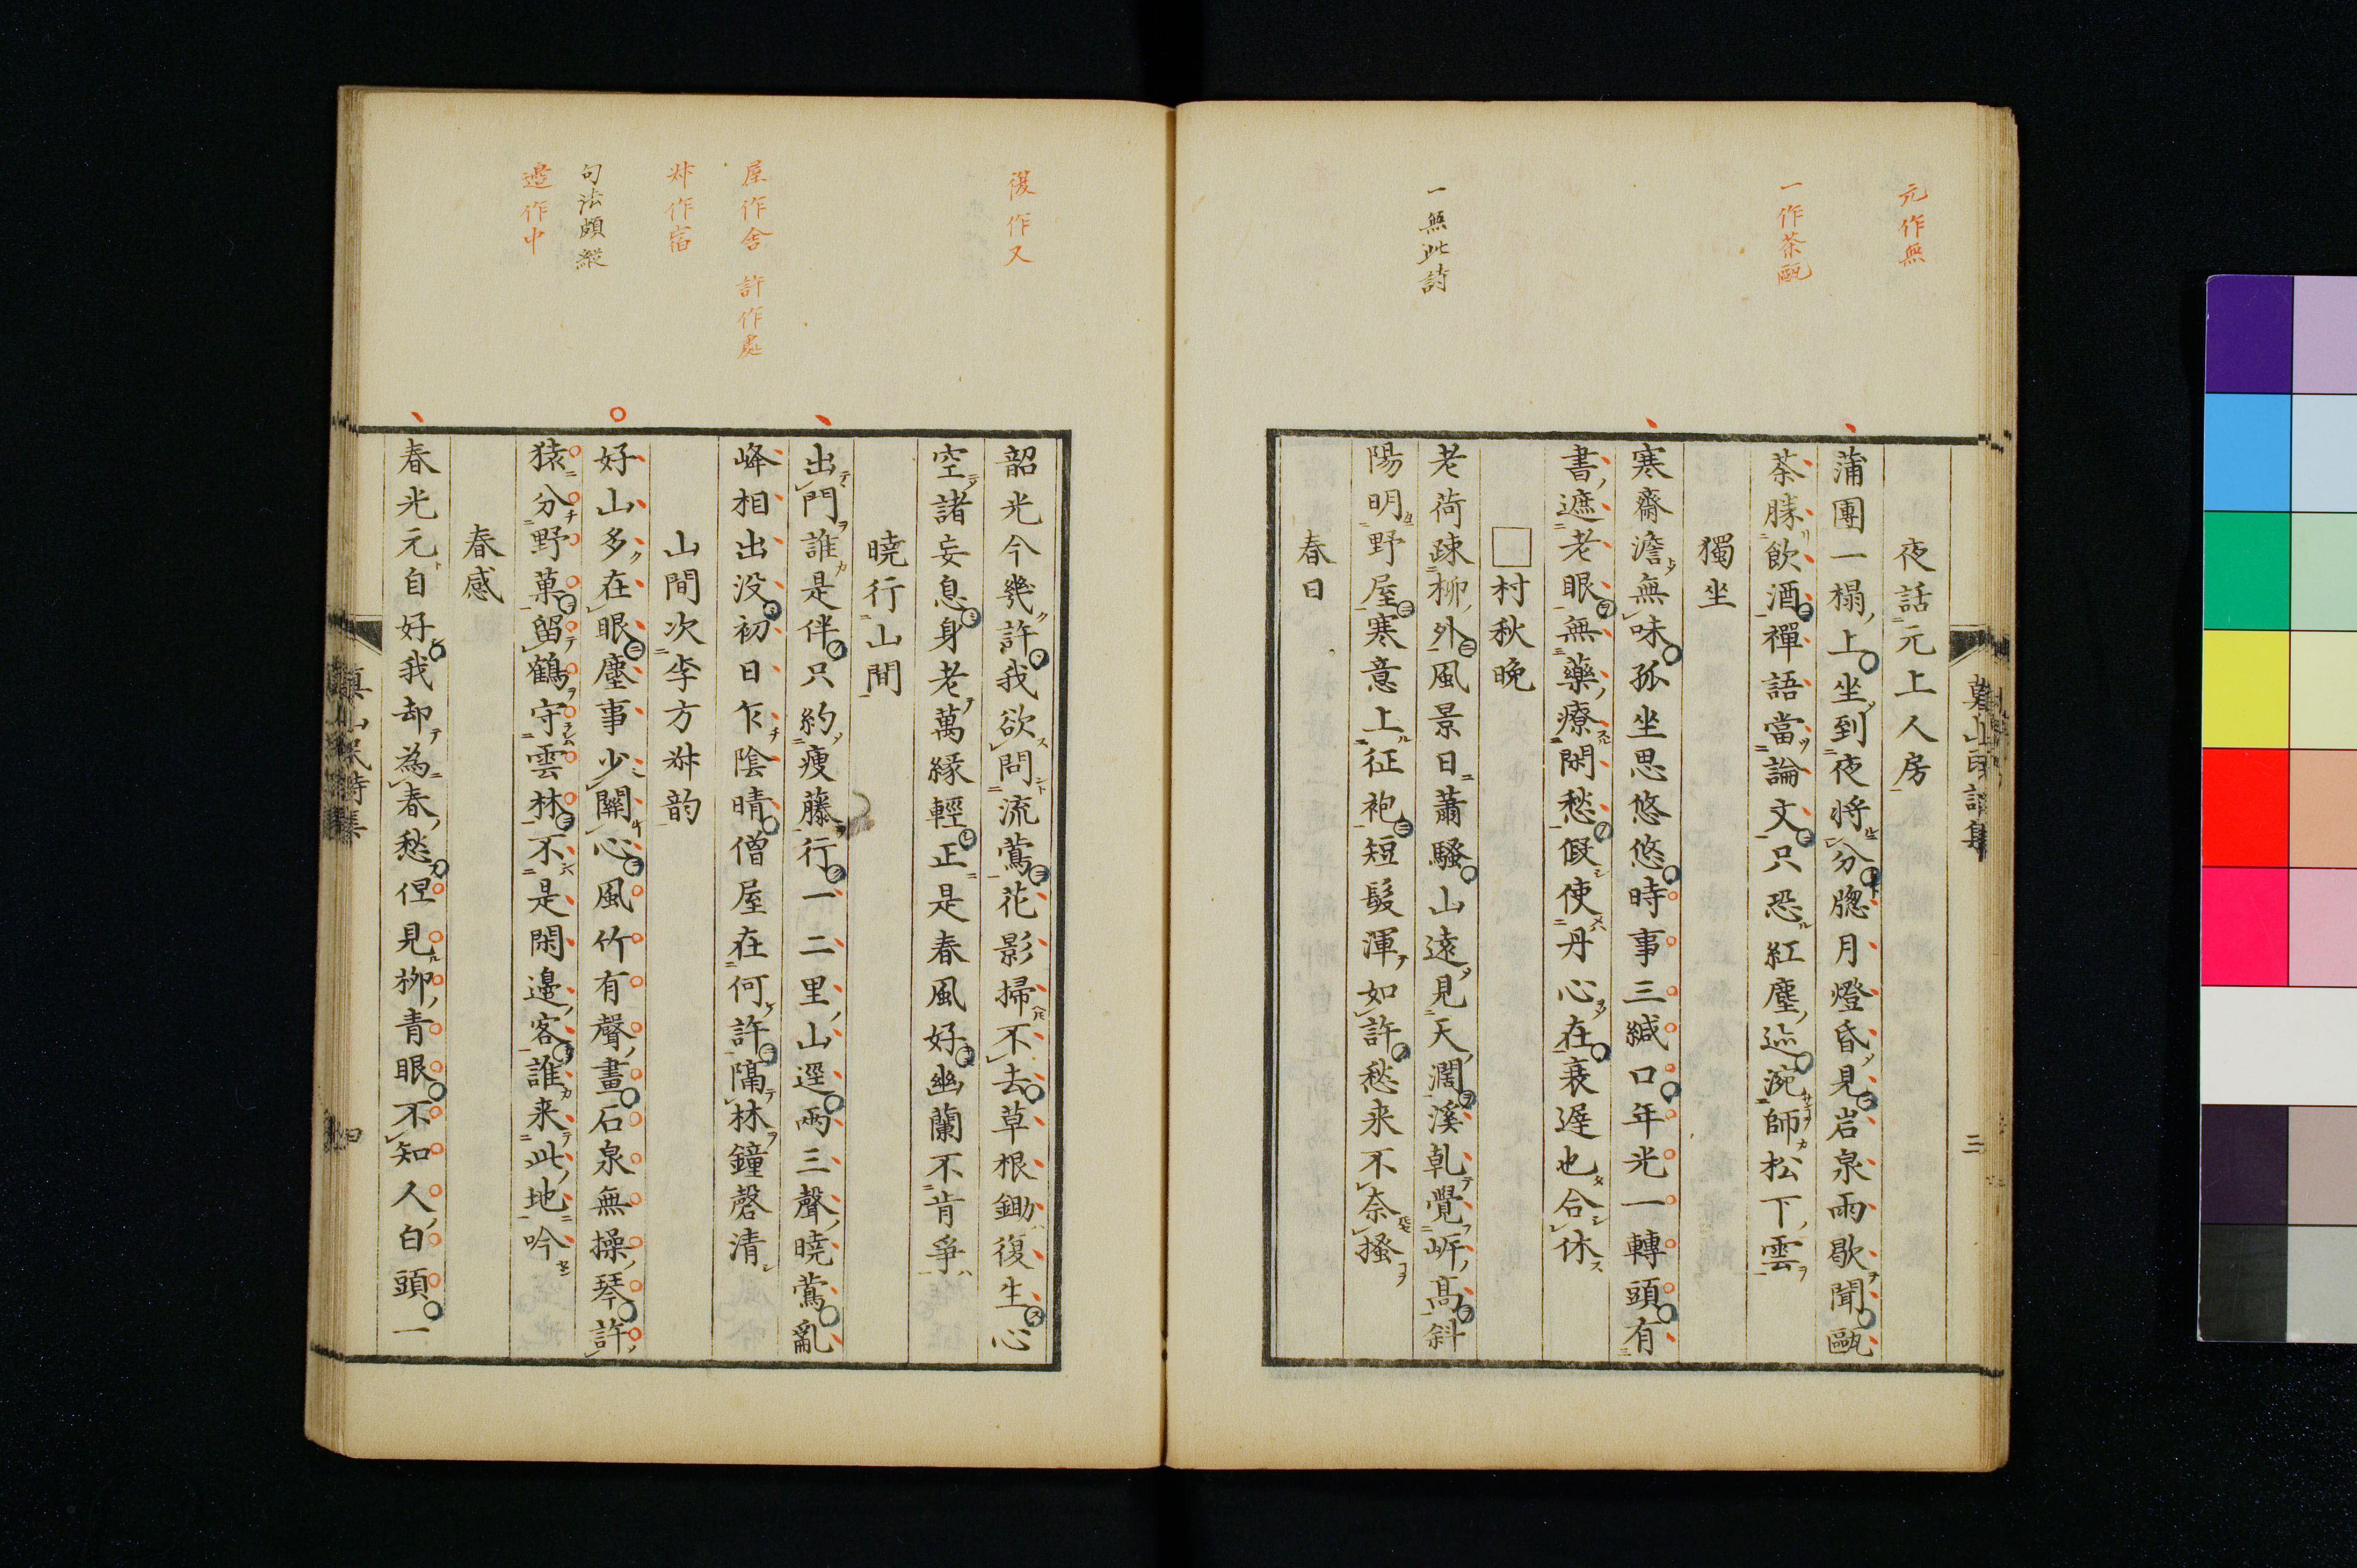 元作無
一作茶甌
一無此詩
夜話元上人房
蒲團一榻上坐到夜將分牕月燈昏見岩泉雨歇聞甌
茶勝飲酒禪語當論文只恐紅塵迹涴師松下雲
獨坐
寒齋澹無味孤坐思悠悠時事三緘口年光一轉頭有
書遮老眼無藥療閑愁假使丹心在衰遅也合休
□村秋晚
老荷疎柳外風景日蕭騷山遠見天濶溪乹覺岍高斜
陽明野屋寒意上征袍短髮渾如許愁来不奈搔
春日
三
復作又
屋作舍 許作處
并作宿
句法頗縱
邉作中
韶光今幾許我欲問流鶯花影掃不去草根鋤復生心
空諸妄息身老萬緣輕正是春風好幽蘭不肯爭
曉行山間
出門誰是伴只約瘦藤行一二里山逕兩三聲曉鶯亂
峰相出没初日乍陰晴僧屋在何許隔林鐘磬清
山間次李方叔韵
好山多在眼塵事少關心風竹有聲畫石泉無操琴許
猿分野菓留鶴守雲林不是閑邉客誰来此地吟
春感
春光元自好我却為春愁但見柳青眼不知人白頭一
真山民詩集
四